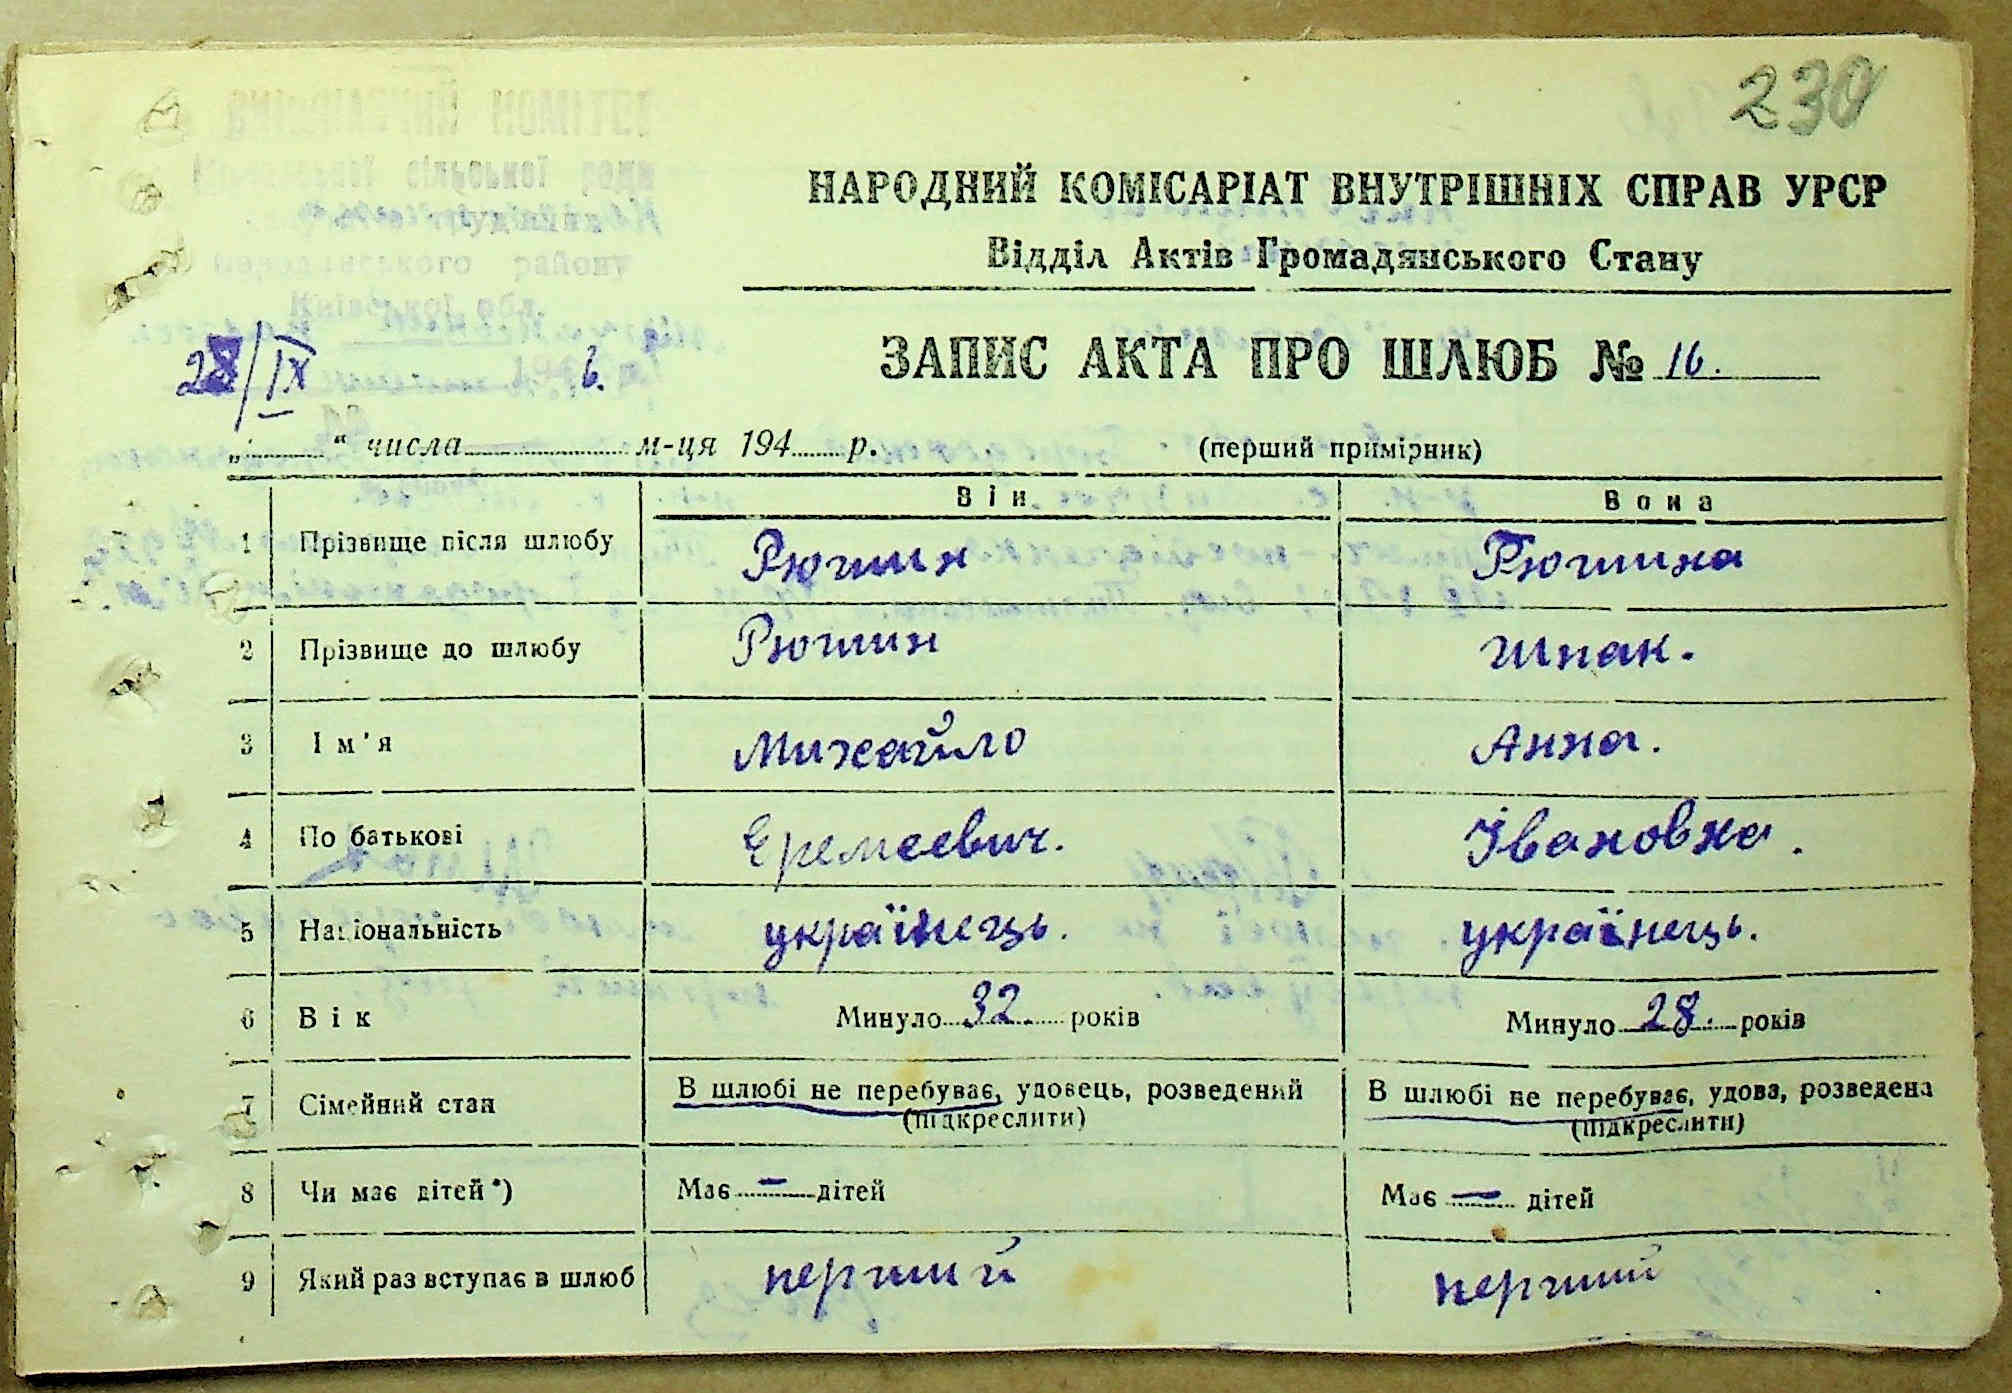 230
ВИКОНАВЧИЙ КОМІТЕТ
сільської ради
району
Київської обл.
НАРОДНИЙ КОМІСАРІАТ ВНУТРІШНІХ СПРАВ УРСР
Відділ Актів Громадянського Стану
28/IX 1946.
ЗАПИС АКТА ПРО ШЛЮБ № 16.
„ “ числа м-ця 194 р. (перший примірник)
Він Вона
1 Прізвище після шлюбу Рютин Рютина
2 Прізвище до шлюбу Рютин Шпак.
3 Ім'я Михайло Анна.
4 По батькові Еремеевич. Івановна.
5 Національність українець. українець.
6 Вік Минуло 32. років Минуло 28. років
7 Сімейний стан В шлюбі не перебуває, удовець, розведений В шлюбі не перебуває, удова, розведена
(підкреслити) (підкреслити)
8 Чи має дітей*) Має – дітей Має – дітей
9 Який раз вступає в шлюб перший перший